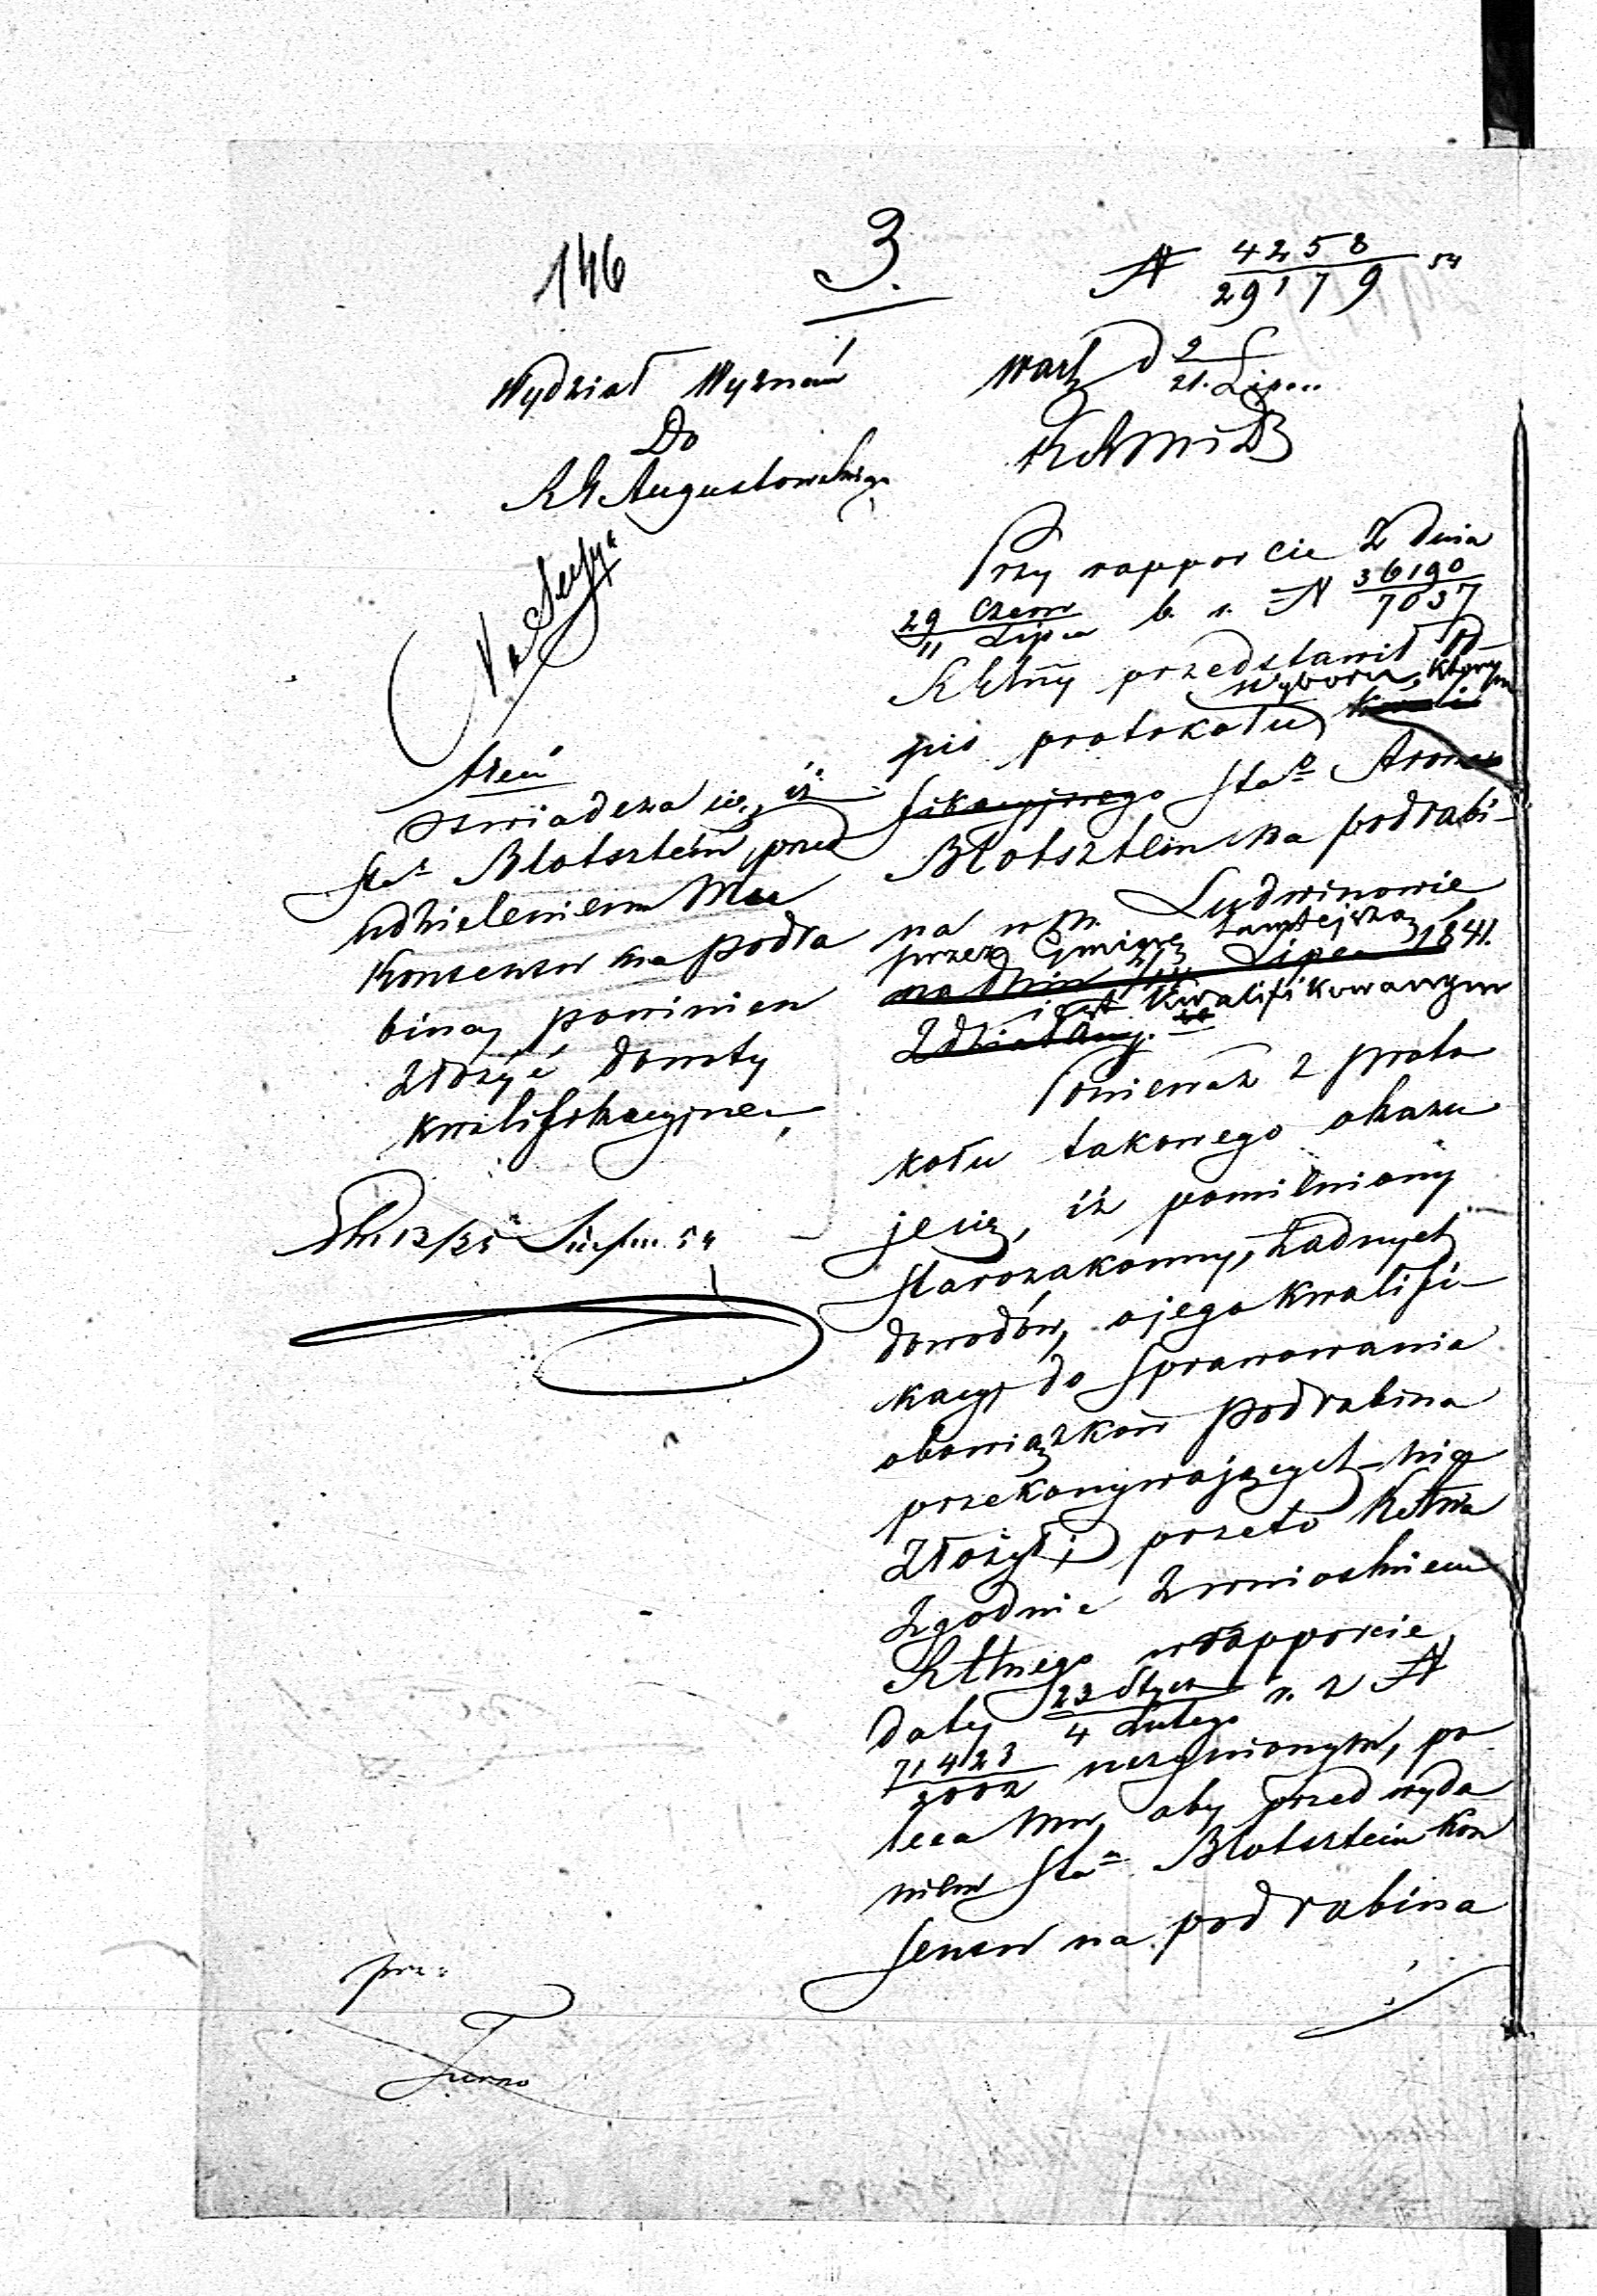 146
3.
N 4258/29179 54
Wydział Wyznań
Do
RG Augustowskiego
Warsz d 9/21. Lipca
Przy rapporcie z dnia
29 Czerw/11 Lipca b. r. N 36190/7037
przedstawił
wyboru, którym
pis protokołu
fikacyjnego Sta Arona
Blotszteina na podrabi-
na w m. Ludwinowie
przez Gminę tamtejszą
na dniu Lipca 1841.
jest kwalifikowanym
Zdziałany.
Ponieważ z proto
kołu takowego okazu
je się, iż pomieniony
starozakonny, żadnych
dowodów, o jego kwalifi-
kacyi do sprawowania
obowiązków podrabina
przekonywających nie
złożył; przeto
zgodnie z wnioskiem
w rapporcie
daty 23 Stycz/4 Lutego r. z N
71423/2002 uczynionym, po
leca mu, aby przed wyda
niem Sta Blotsztein kon
sensu na podrabina
treść
Oświadcza się, iż
Sta Blotsztein, przed
udzieleniem Mu
konsensu na podra
bina, powinien
złożyć dowody
kwalifikacyjne
12/25 54